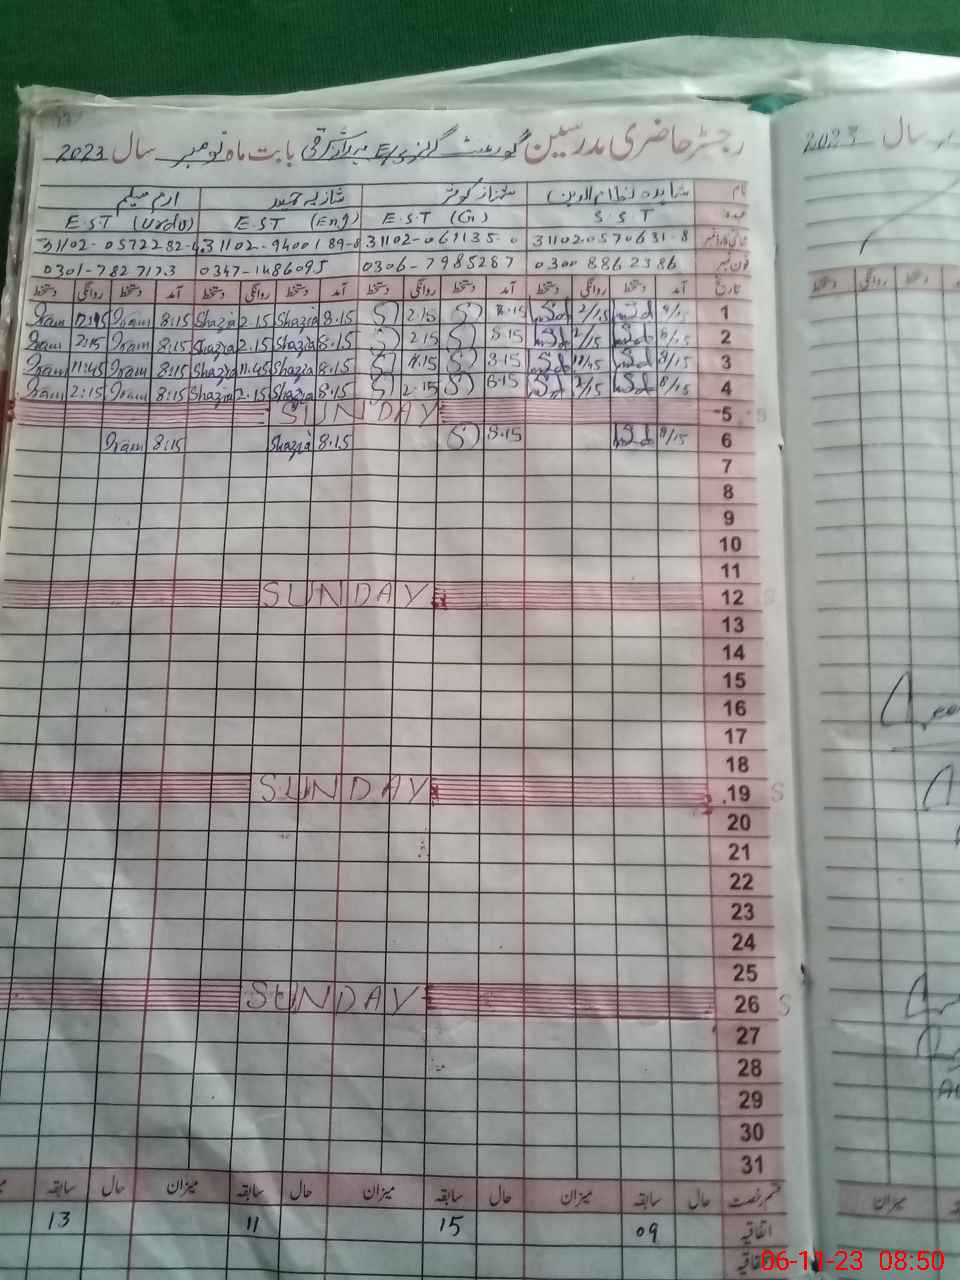 رجسٹر حاضری مدرسین گورنمنٹ گرلز E/S بابت ماہ نومبر سال 2023
نام شاہدہ نظام الدین شہناز کوثر شازیہ ارم سلیم
عہدہ S.S.T E.S.T (G) E.S.T (Eng) E.S.T (Urdu)
31102-0570631-8 31102-061135-0 31102-9400189-8 31102-0572282-
فون نمبر 0300 8862386 0306-7985287 0347-1486095 0301-7827173
تاریخ آمد دستخط روانگی دستخط آمد دستخط روانگی دستخط آمد دستخط روانگی دستخط آمد دستخط روانگی دستخط
1 8/15 2/15 8.15 2.15 8.15 Shazia 2.15 Shazia 8:15 Iram 2:15 Iram
2 8/15 2/15 8.15 2.15 8.15 Shazia 2.15 Shazia 8:15 Iram 2:15 Iram
3 8/15 11/45 8.15 11.45 8.15 Shazia 11.45 Shazia 8:15 Iram 11:45 Iram
4 8/15 2/15 8.15 2.15 8.15 Shazia 2.15 Shazia 8:15 Iram 2:15 Iram
5 SUNDAY
6 8/15 8.15 8.15 Shazia 8:15 Iram
7
8
9
10
11
12 SUNDAY
13
14
15
16
17
18
19 SUNDAY S
20
21
22
23
24
25
26 SUNDAY S
27
28
29
30
31
قسم رخصت حال سابقہ میزان حال سابقہ میزان حال سابقہ میزان حال سابقہ
اتفاقیہ 09 15 11 13
سال 2023
دستخط روانگی دستخط
میزان
06-11-23 08:50